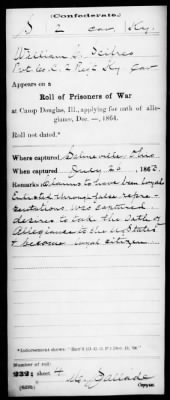 (Confederate.)
S 2 Cav. Ky.
William J.
Pvt Co. C. 2 Reg't Ky Cav
Appears on a
Roll of Prisoners of War
at Camp Douglas, Ill., applying for oath of alle-
giance, Dec. —, 1864.
Roll not dated.*
Where captured Salineville, Ohio
When captured July 26, 1863.
Remarks Claims to have been loyal
Enlisted through false repre-
sentations. Was captured
desires to take the Oath of
Allegiance to the U.S. States
& become loyal citizen
*Indorsement shows: "Rec'd (O. C. G. P.) Dec. 15, '64."
Number of roll:
232; sheet 4
Copyist.